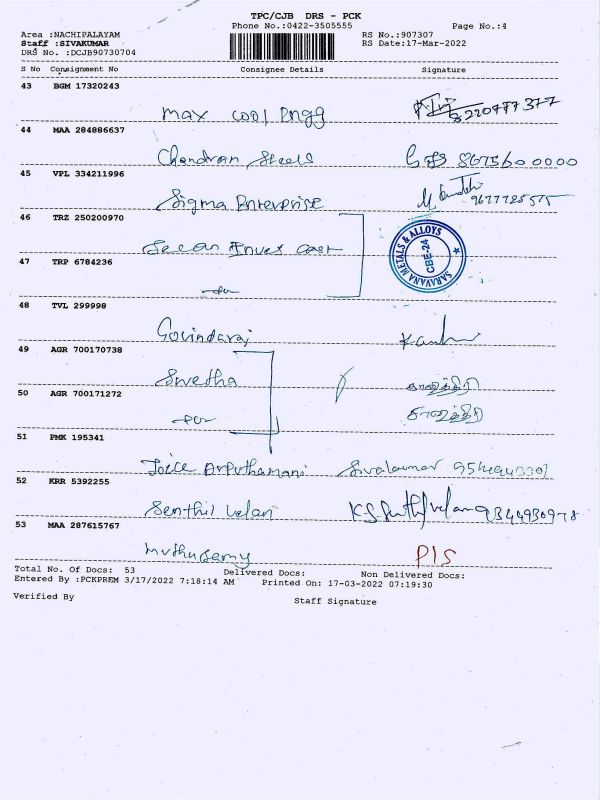 TPC/CJB DRS - PCK
Phone No.:0422-3505555 Page No.:4
Area :NACHIPALAYAM RS No.:907307
Staff :SIVAKUMAR RS Date:17-Mar-2022
DRS No. :DCJB90730704
S No Consignment No Consignee Details Signature
43 BGM 17320243
Max Cool Engg 8220777377
44 MAA 284886637
Chandran Steels 8675600000
45 VPL 334211996
Sigma Enterprise 9677725575
46 TRZ 250200970
Invest Cast
SARAVANA METALS & ALLOYS
CBE-24
47 TRP 6784236
48 TVL 299998
Govindaraj
49 AGR 700170738
Swetha
50 AGR 700171272
51 PMK 195341
Joice Arputhamani Sivakumar
52 KRR 5392255
Senthil Velan K.S. Senthil Velan 9344930978
53 MAA 287615767
Muthusamy PIS
Total No. Of Docs: 53 Delivered Docs: Non Delivered Docs:
Entered By :PCKPREM 3/17/2022 7:18:14 AM Printed On: 17-03-2022 07:19:30
Verified By Staff Signature